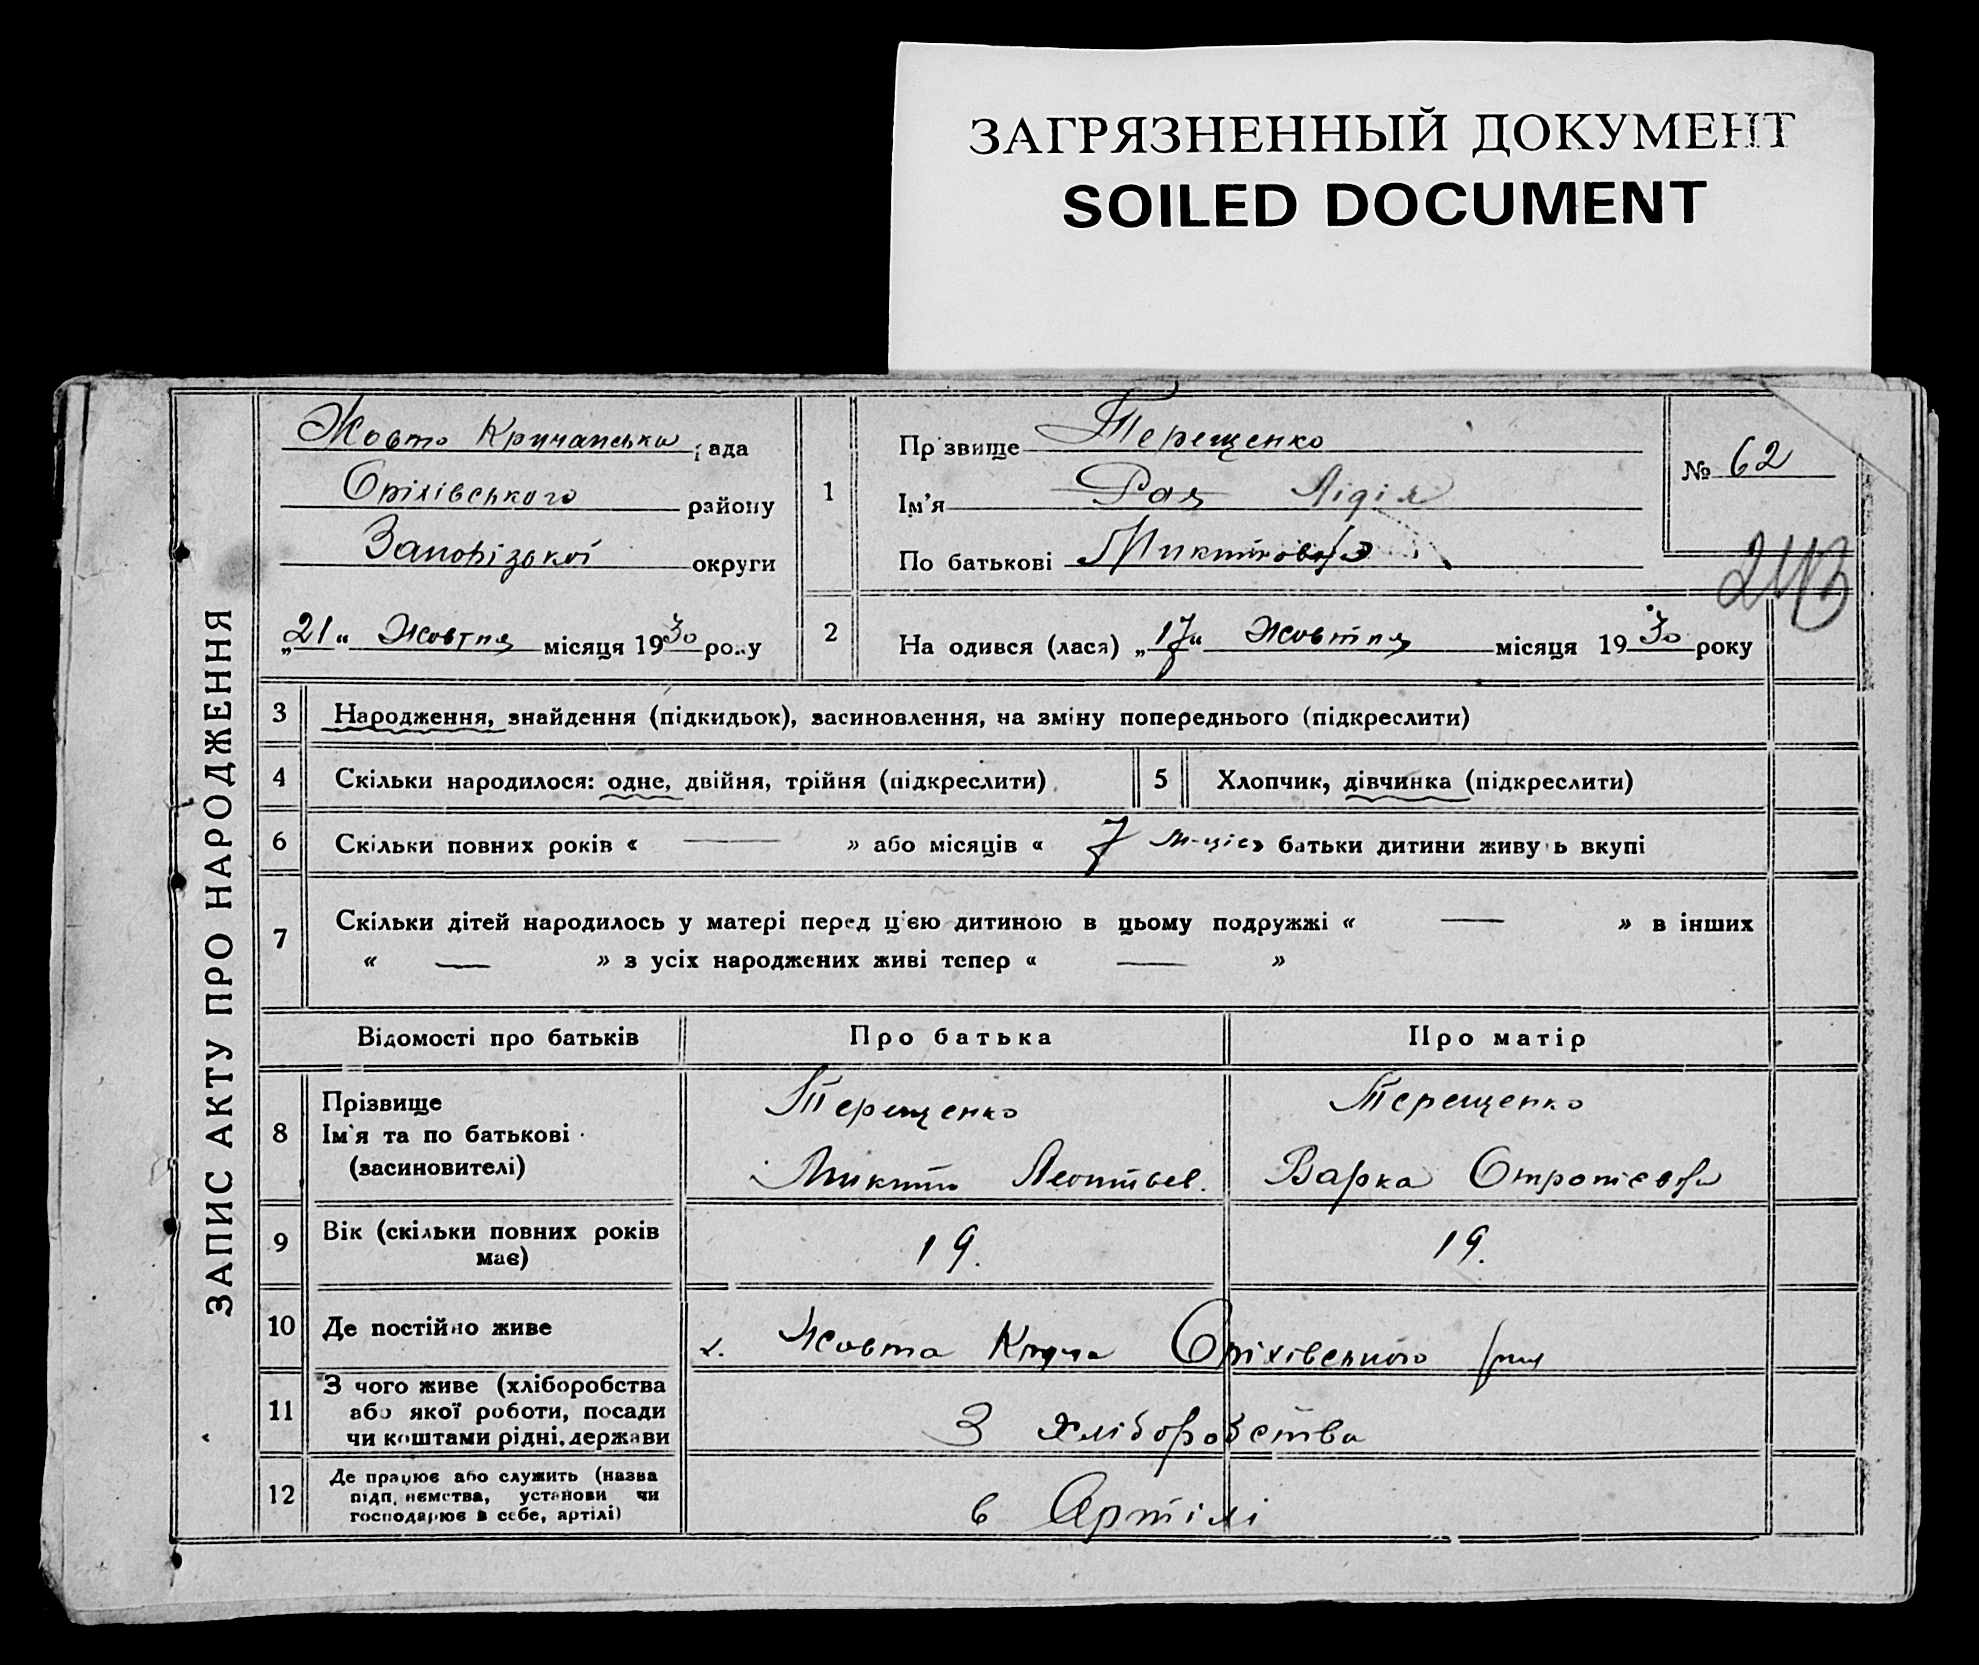 ЗАГРЯЗНЕННЫЙ ДОКУМЕНТ
SOILED DOCUMENT
ЗАПИС АКТУ ПРО НАРОДЖЕННЯ
Жовто Кручанська рада
Оріхівського району
Запорізької округи
„21“ Жовтня місяця 1930 року
1
Прізвище Терещенко
Ім'я Рая Лідія
По батькові Микитовна
№ 62
2
На одився (лася) „17“ Жовтня місяця 1930 року
3 Народження, знайдення (підкидьок), засиновлення, на зміну попереднього (підкреслити)
4 Скільки народилося: одне, двійня, трійня (підкреслити)
5 Хлопчик, дівчинка (підкреслити)
6 Скільки повних років « — » або місяців « 7 м-ців » батьки дитини живуть вкупі
7 Скільки дітей народилось у матері перед цією дитиною в цьому подружжі « — » в інших
« — » з усіх народжених живі тепер « — »
Відомості про батьків Про батька Про матір
8 Прізвище
Ім'я та по батькові
(засиновителі)
Терещенко
Микита Леонтьев.
Терещенко
Варка
9 Вік (скільки повних років
має)
19.
19.
10 Де постійно живе
с. Жовта Круча Оріхівського р-ну
11 З чого живе (хліборобства
або якої роботи, посади
чи коштами рідні, держави
З хліборобства
12 Де працює або служить (назва
підприємства, установи чи
господарює в себе, артілі)
в Артілі